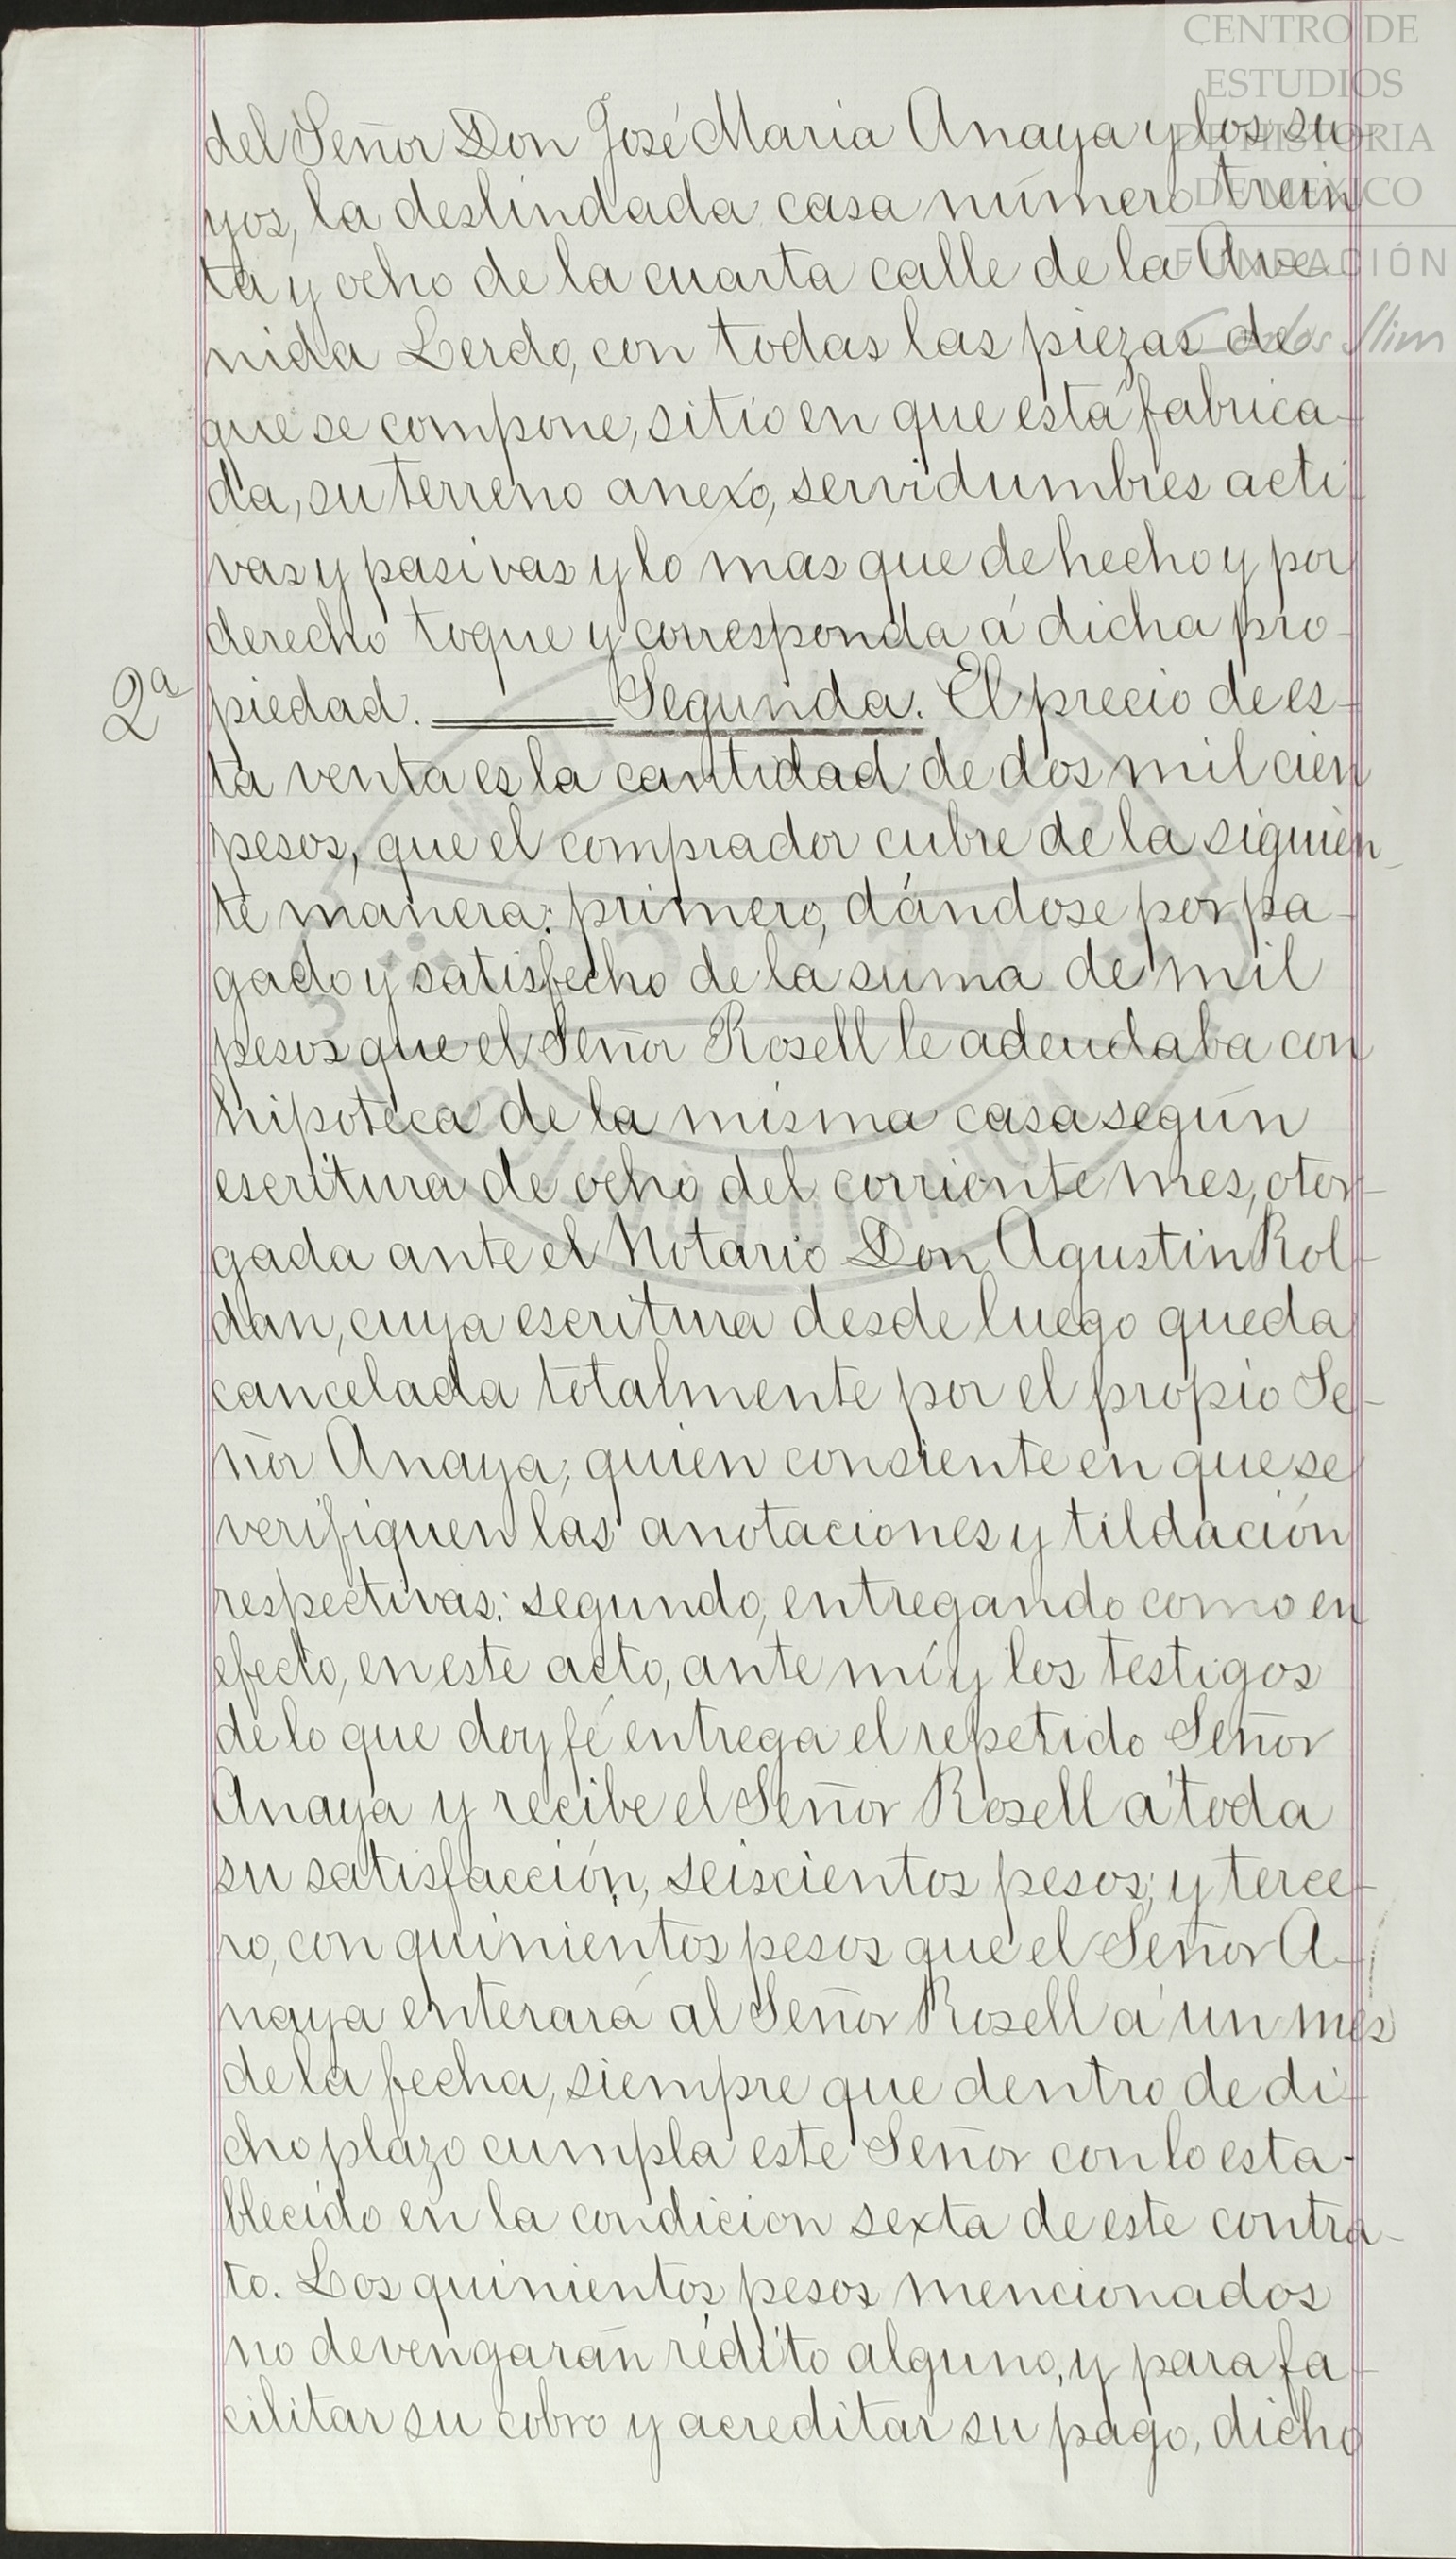 CENTRO DE
ESTUDIOS
DE HISTORIA
DE MÉXICO
FUNDACIÓN
Carlos Slim
del Señor Don José Maria Anaya y los su
yos, la deslindada casa número trein
ta y ocho de la cuarta calle de la Ave-
nida Lerdo, con todas las piezas de
que se compone, sitio en que está fabrica-
da, su terreno anexo, servidumbres acti-
vas y pasivas y lo mas que de hecho y por
derecho toque y corresponda á dicha pro-
2ª piedad. Segunda. El precio de es-
ta venta es la cantidad de dos mil cien
pesos, que el comprador cubre de la siguien-
te manera: primero, dándose por pa-
gado y satisfecho de la suma de mil
pesos que el Señor Rosell le adeudaba con
hipoteca de la misma casa según
escritura de ocho del corriente mes, otor-
gada ante el Notario Don Agustin Rol-
dan, cuya escritura desde luego queda
cancelada totalmente por el propio Se-
ñor Anaya, quien consiente en que se
verifiquen las anotaciones y tildación
respectivas: segundo, entregando como en
efecto, en este acto, ante mí y los testigos
de lo que doy fé entrega el repetido Señor
Anaya y recibe el Señor Rosell á toda
su satisfacción, seiscientos pesos; y terce-
ro, con quinientos pesos que el Señor A-
naya enterará al Señor Rosell á un mes
de la fecha, siempre que dentro de di-
cho plazo cumpla este Señor con lo esta-
blecido en la condicion sexta de este contra-
to. Los quinientos pesos mencionados
no devengarán rédito alguno, y para fa-
cilitar su cobro y acreditar su pago, dicho